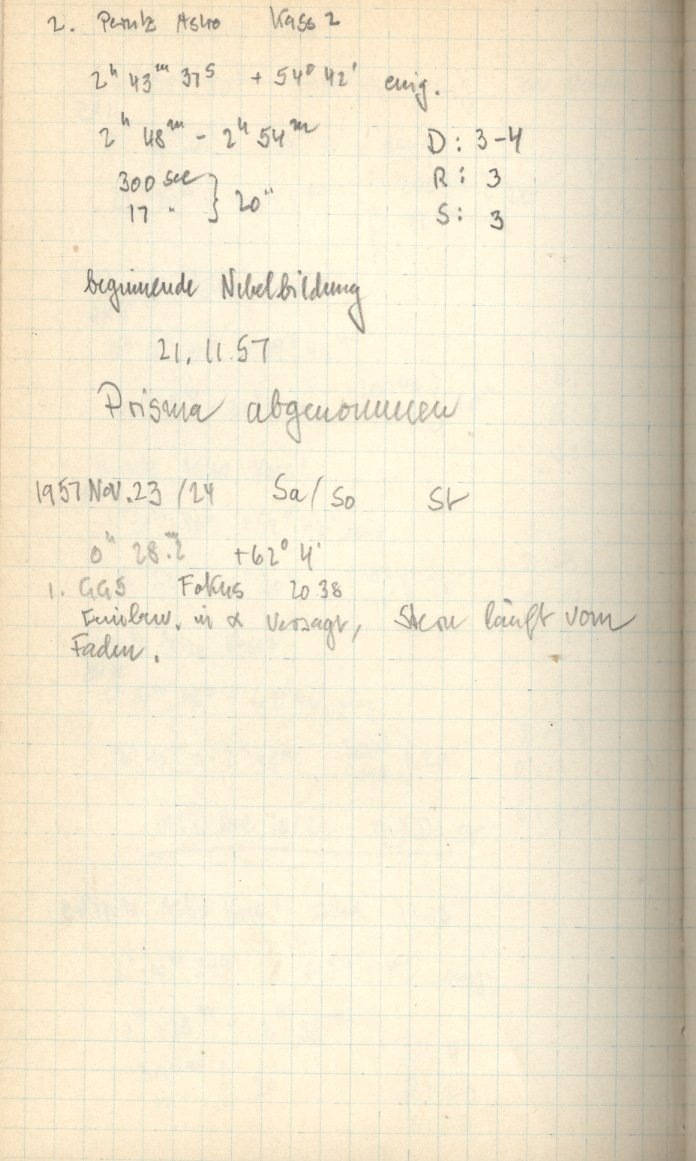 2. Perutz Astro Kass 2
2ʰ 43ᵐ 37ˢ + 54° 42'
2ʰ 48ᵐ - 2ʰ 54ᵐ D: 3-4
300 sec } 20" R: 3
17 " S: 3
beginnende Nebelbildung
21. 11. 57
Prisma abgenommen
1957 Nov. 23 /24 Sa/So St
0ʰ 28.ᵐ2 +62° 4'
1. GG5 Fokus 20 38
Feinbew. in α versagt, Stern läuft vom
Faden.